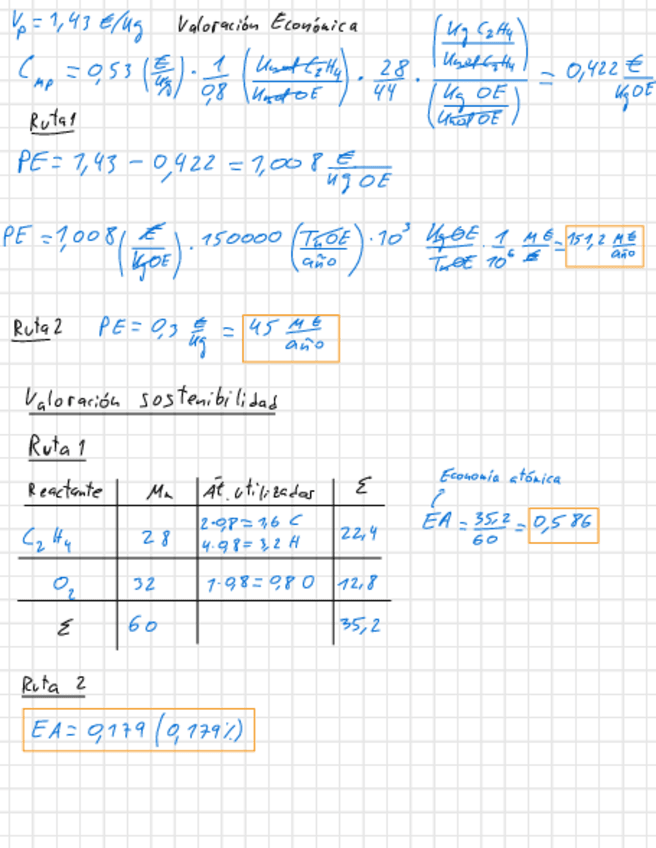 Vp = 1,43 €/kg Valoración Económica
Cmp = 0,53 (€/kg) · 1/0,8 (Kmol C2H4/Kmol OE) · 28/44 · (Kg C2H4/Kmol C2H4)/(Kg OE/Kmol OE) = 0,422 €/Kg OE
Ruta 1
PE = 1,43 - 0,422 = 1,008 €/Kg OE
PE = 1,008 (€/KgOE) · 150000 (TnOE/año) · 10³ KgOE/TnOE · 1/10⁶ M€/€ = 151,2 M€/año
Ruta 2 PE = 0,3 €/Kg = 45 M€/año
Valoración sostenibilidad
Ruta 1
Reactante Mn Át. utilizados Σ
C2H4 28 2·0,8 = 1,6 C 22,4
4·0,8 = 3,2 H
O2 32 1·0,8 = 0,8 O 12,8
Σ 60 35,2
Economía atómica
EA = 35,2/60 = 0,586
Ruta 2
EA = 0,179 (0,179%)